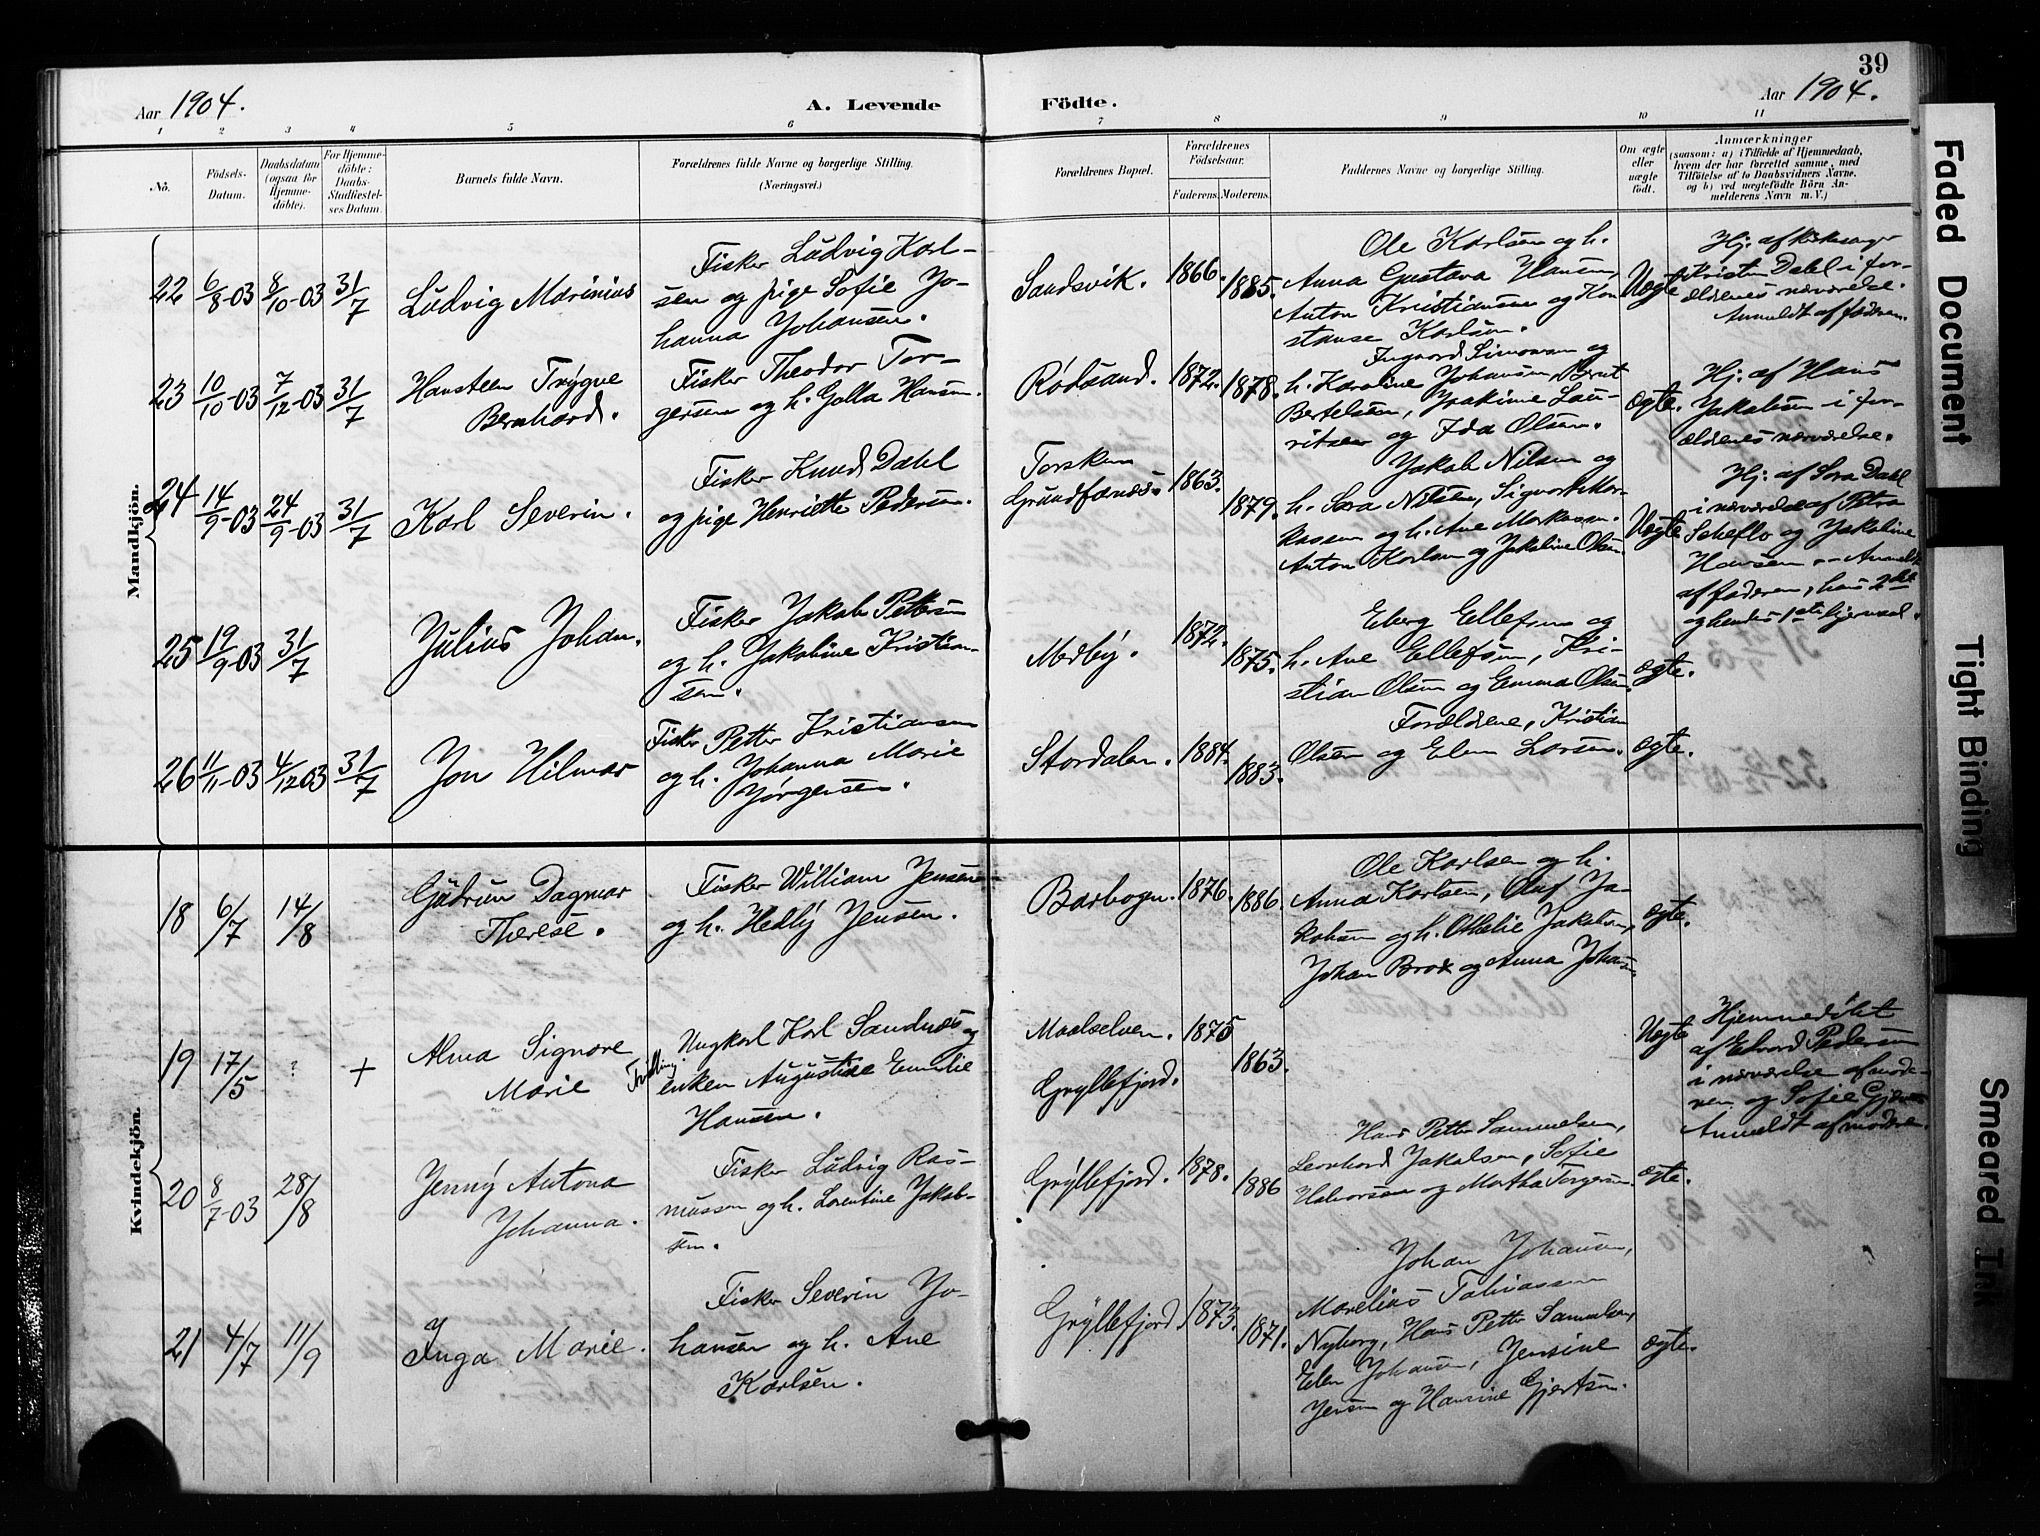 39
Aar 1904.
A. Levende
Födte.
Aar 1904.
1 2 3 4 5 6 7 8 9 10 11
No.
Födsels-
Datum.
Daabsdatum
(ogsaa for
Hjemme-
döbte).
For Hjemme-
döbte:
Daabs-
Stadfæstel-
ses Datum.
Barnets fulde Navn.
Forældrenes fulde Navne og borgerlige Stilling.
(Næringsvei.)
Forældrenes Bopæl.
Forældrenes
Födselsaar.
Faderens. Moderens.
Faddernes Navne og borgerlige Stilling.
Om ægte
eller
uægte
födt.
Anmærkninger
(saasom: a) i Tilfælde af Hjemmedaab,
hvem der har forrettet samme, med
Tilföielse af to Daabsvidners Navne.
og b) ved uægtefödte Börn An-
melderens Navn m. V.)
Mandkjön.
22 6/8-03 8/10-03 31/7
Ludvig Marinius
Fisker Ludvig Karl-
sen og pige Sofie Jo-
hanna Johansen.
Sandsvik. 1866. 1885.
Ole Karlsen og h.
Anna Gustava Hansen,
Anton Kristiansen og Kon
stanse Karlsen.
Uægte
Hj. af kirkesanger
Kristen Dahl i for-
ældrenes nærværelse.
Anmeldt af faderen.
23 10/10-03 7/12-03 31/7
Hansteen Trygve
Bernhard.
Fisker Theodor Tor-
gersen og h. Golla Hansen.
Rödsand. 1872. 1878.
Ingvard Simonsen og
h. Karoline Johansen, Berit
Bertelsen, Joakime Lau-
ritsen og Ida Olsen.
ægte.
Hj. af Hans
Jakobsen i for-
ældrenes nærværelse.
24 14/9-03 24/9-03 31/7
Karl Severin.
Fisker Knud Dahl
og pige Henriette Pedersen.
Torsken
Grundfarnæs. 1863. 1879.
Jakob Nilsen og
h. Sara Nilsen, Sigvart Mar-
kussen og h. Ane Markussen.
Anton Karlsen og Jakobine Olsen
Uægte
Hj. af Sara Dahl
i nærværelse af Petra
Scheflo og Jakobine
Hansen. - Anmeldt
af faderen, hans 2det
og hendes 1ste leiermaal.
25 19/9-03 31/7
Julius Johan.
Fisker Jakob Pettersen
og h. Jakobine Kristian-
sen.
Medby. 1872. 1875.
Eberg Ellefsen og
h. Ane Ellefsen, Kri-
stian Olsen og Emma Olsen.
ægte.
26 11/11-03 4/12-03 31/7
Jon Hilmar
Fisker Petter Kristiansen
og h. Johanna Marie
Jörgensen.
Stordalen. 1884. 1883.
Forældrene, Kristian
Olsen og Elen Larsen.
ægte.
Kvindekjön.
18 6/7 14/8
Gudrun Dagmar
Therese.
Fisker William Jensen
og h. Hedly Jensen.
Barbogen. 1876. 1886.
Ole Karlsen og h.
Anna Karlsen, Oluf Ja-
kobsen og h. Othelie Jakobsen,
Johan Brox og Anna Johansen
ægte.
19 17/5 ? +
Alma Signore
Marie
Tvilling
Ungkarl Karl Sandnæs og
enken Augustine Emilie
Hansen.
Maalselven. 1875
Gryllefjord. 1863.
Uægte
Hjemmedöbt
af Edvard Pedersen
i nærværelse af mode-
ren og Sofie
Anmeldt af moderen.
20 8/7-03 28/8
Jenny Antona
Johanna.
Fisker Ludvig Ras-
mussen og h. Lorentine Jakob-
sen.
Gryllefjord. 1878. 1886
Hans Petter Sammelsen,
Leonhard Jakobsen, Sofie
Halvorsen og Martha Torgersen.
ægte.
21 4/7 11/9
Inga Marie.
Fisker Severin Jo-
hansen og h. Ane
Karlsen.
Gryllefjord. 1873. 1871.
Johan Johansen,
Marelius Tobiassen
Nyborg, Hans Petter Sammelsen,
Elen Johansen, Jensine
Jensen og Hansine Gjertsen.
ægte.
Faded Document
Tight Binding
Smeared Ink